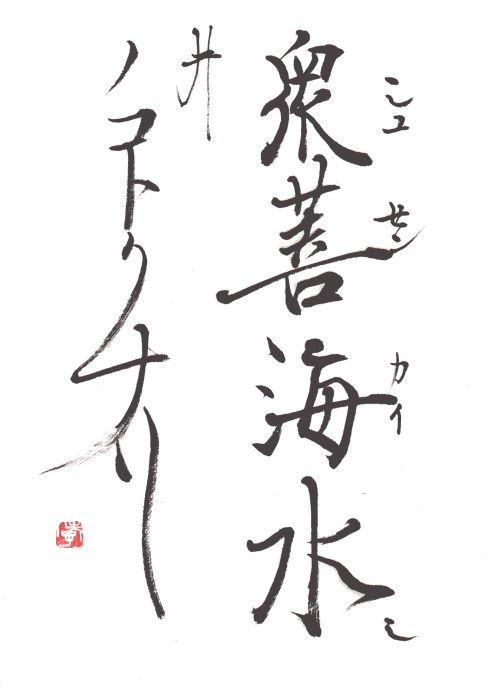 衆善海水
シユ
セン
カイ
シ
井
ノコトクナリ